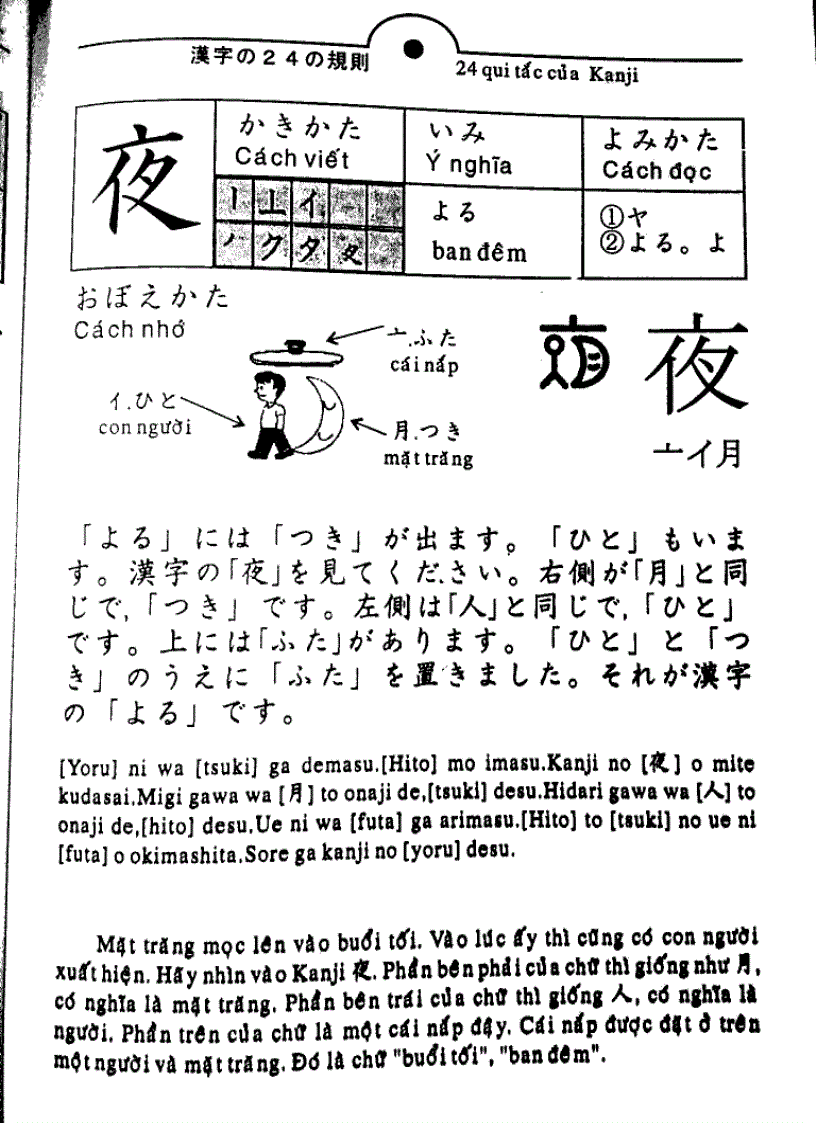 漢字の24の規則
24 qui tắc của Kanji
夜
かきかた
Cách viết
いみ
Ý nghĩa
よみかた
Cách đọc
よる
ban đêm
①ヤ
②よる。よ
おぼえかた
Cách nhớ
亠.ふた
cái nắp
イ.ひと
con người
月.つき
mặt trăng
夜
亠イ月
「よる」には「つき」が出ます。「ひと」もいま
す。漢字の「夜」を見てください。右側が「月」と同
じで,「つき」です。左側は「人」と同じで,「ひと」
です。上には「ふた」があります。「ひと」と「つ
き」のうえに「ふた」を置きました。それが漢字
の「よる」です。
[Yoru] ni wa [tsuki] ga demasu.[Hito] mo imasu.Kanji no [夜] o mite
kudasai.Migi gawa wa [月] to onaji de,[tsuki] desu.Hidari gawa wa [人] to
onaji de,[hito] desu.Ue ni wa [futa] ga arimasu.[Hito] to [tsuki] no ue ni
[futa] o okimashita.Sore ga kanji no [yoru] desu.
Mặt trăng mọc lên vào buổi tối. Vào lúc ấy thì cũng có con người
xuất hiện. Hãy nhìn vào Kanji 夜. Phần bên phải của chữ thì giống như 月,
có nghĩa là mặt trăng. Phần bên trái của chữ thì giống 人, có nghĩa là
người. Phần trên của chữ là một cái nắp đậy. Cái nắp được đặt ở trên
một người và mặt trăng. Đó là chữ "buổi tối", "ban đêm".